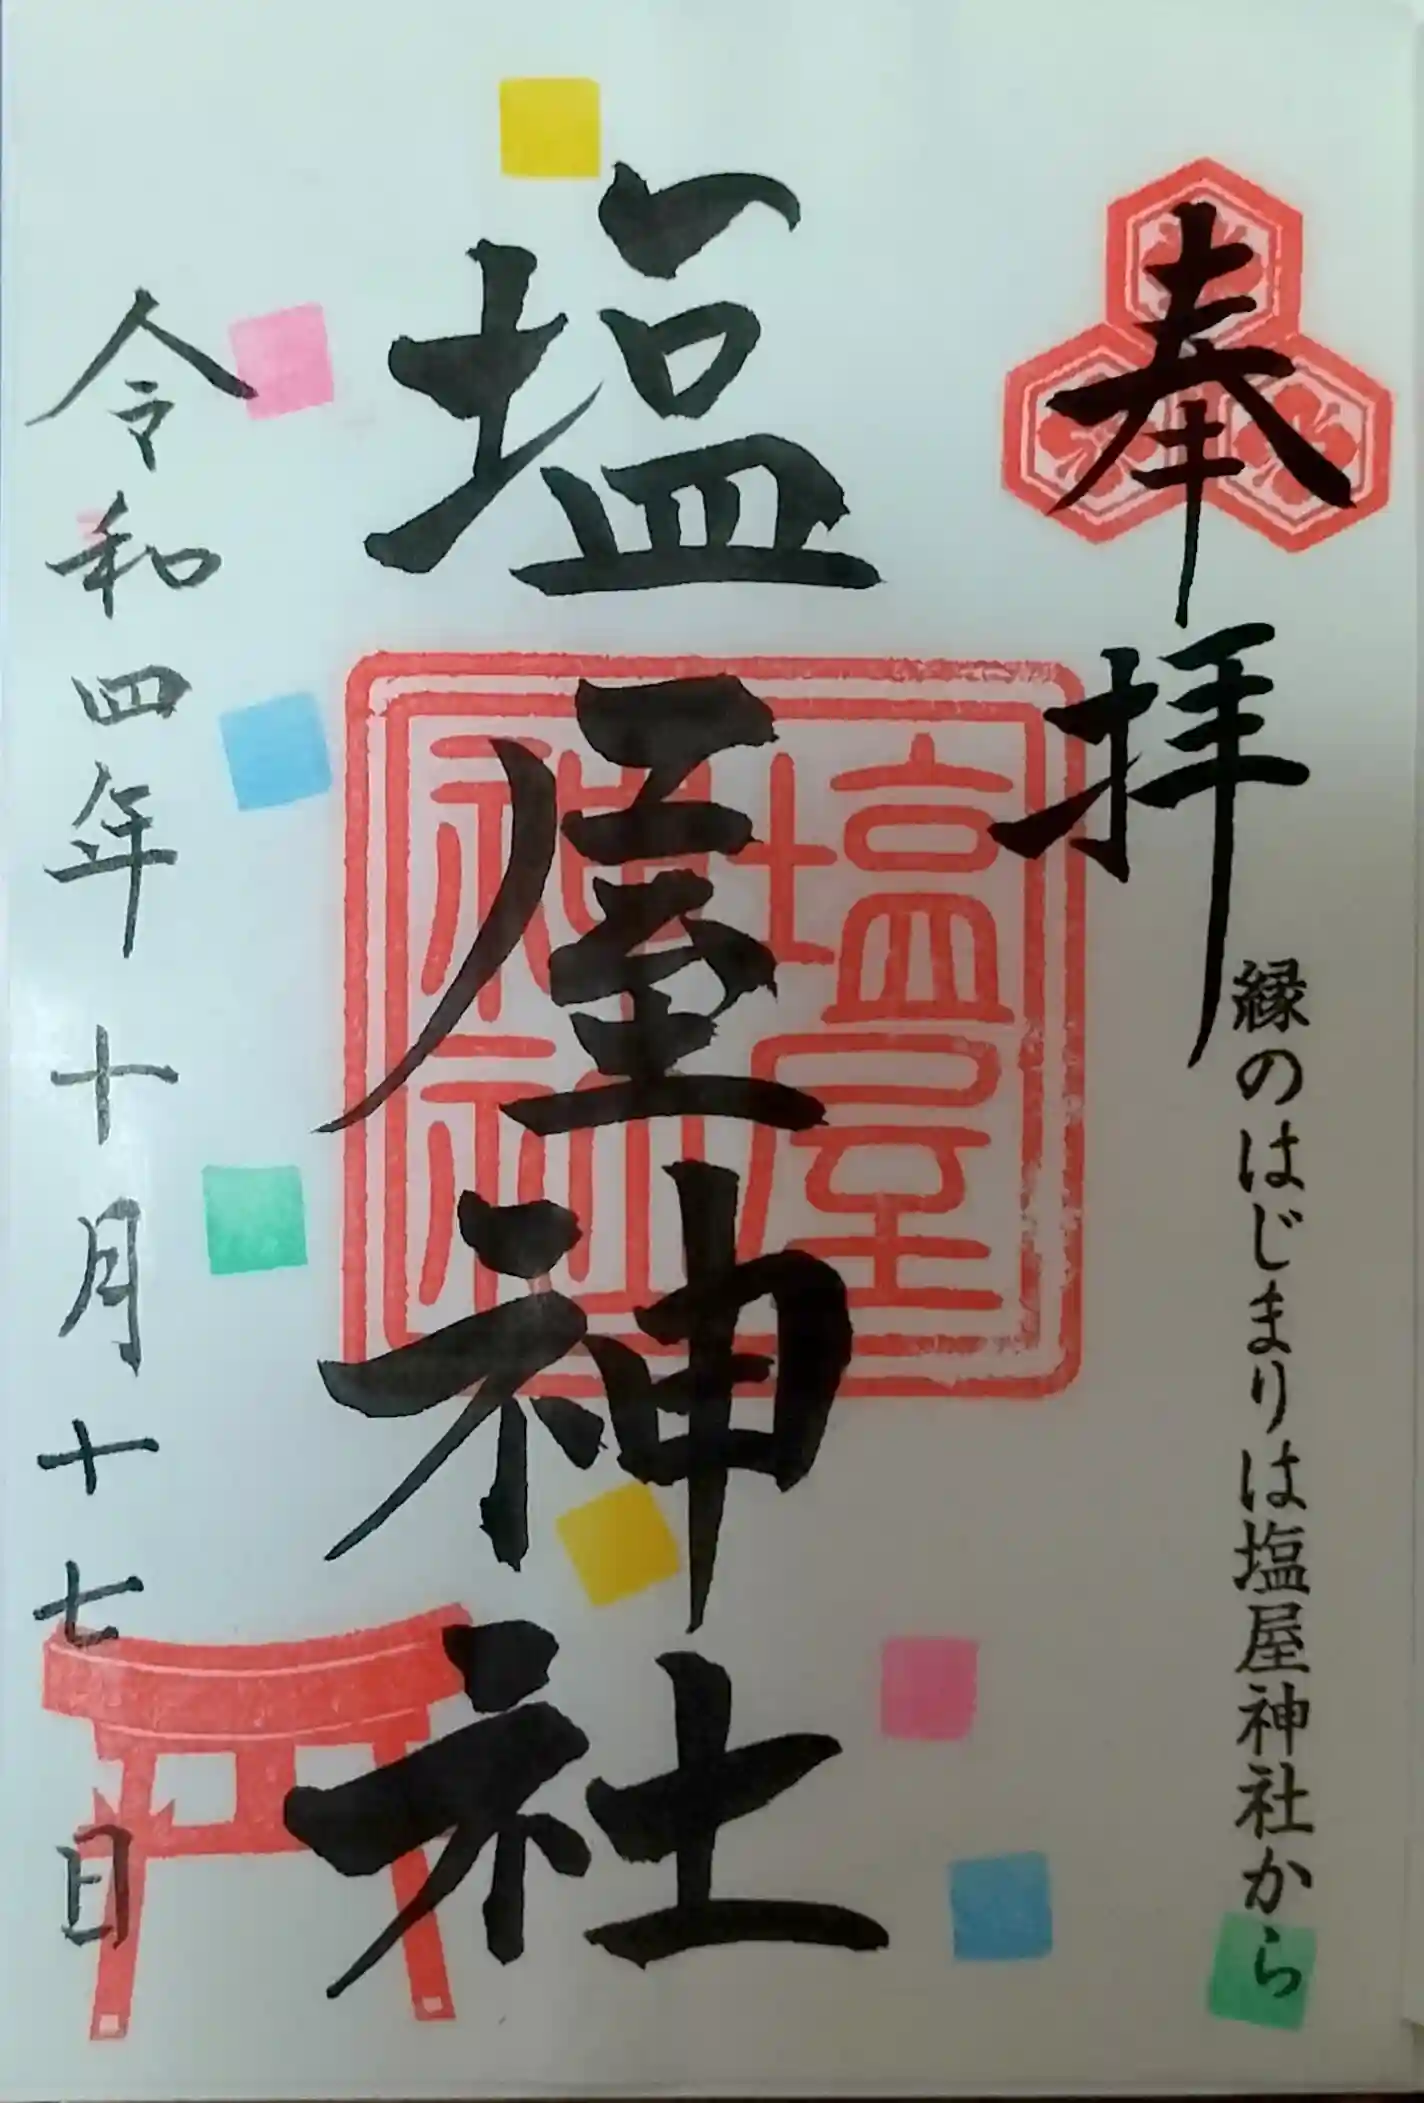 奉拝
縁のはじまりは塩屋神社から
塩屋神社
塩屋
神社
令和四年十月十七日